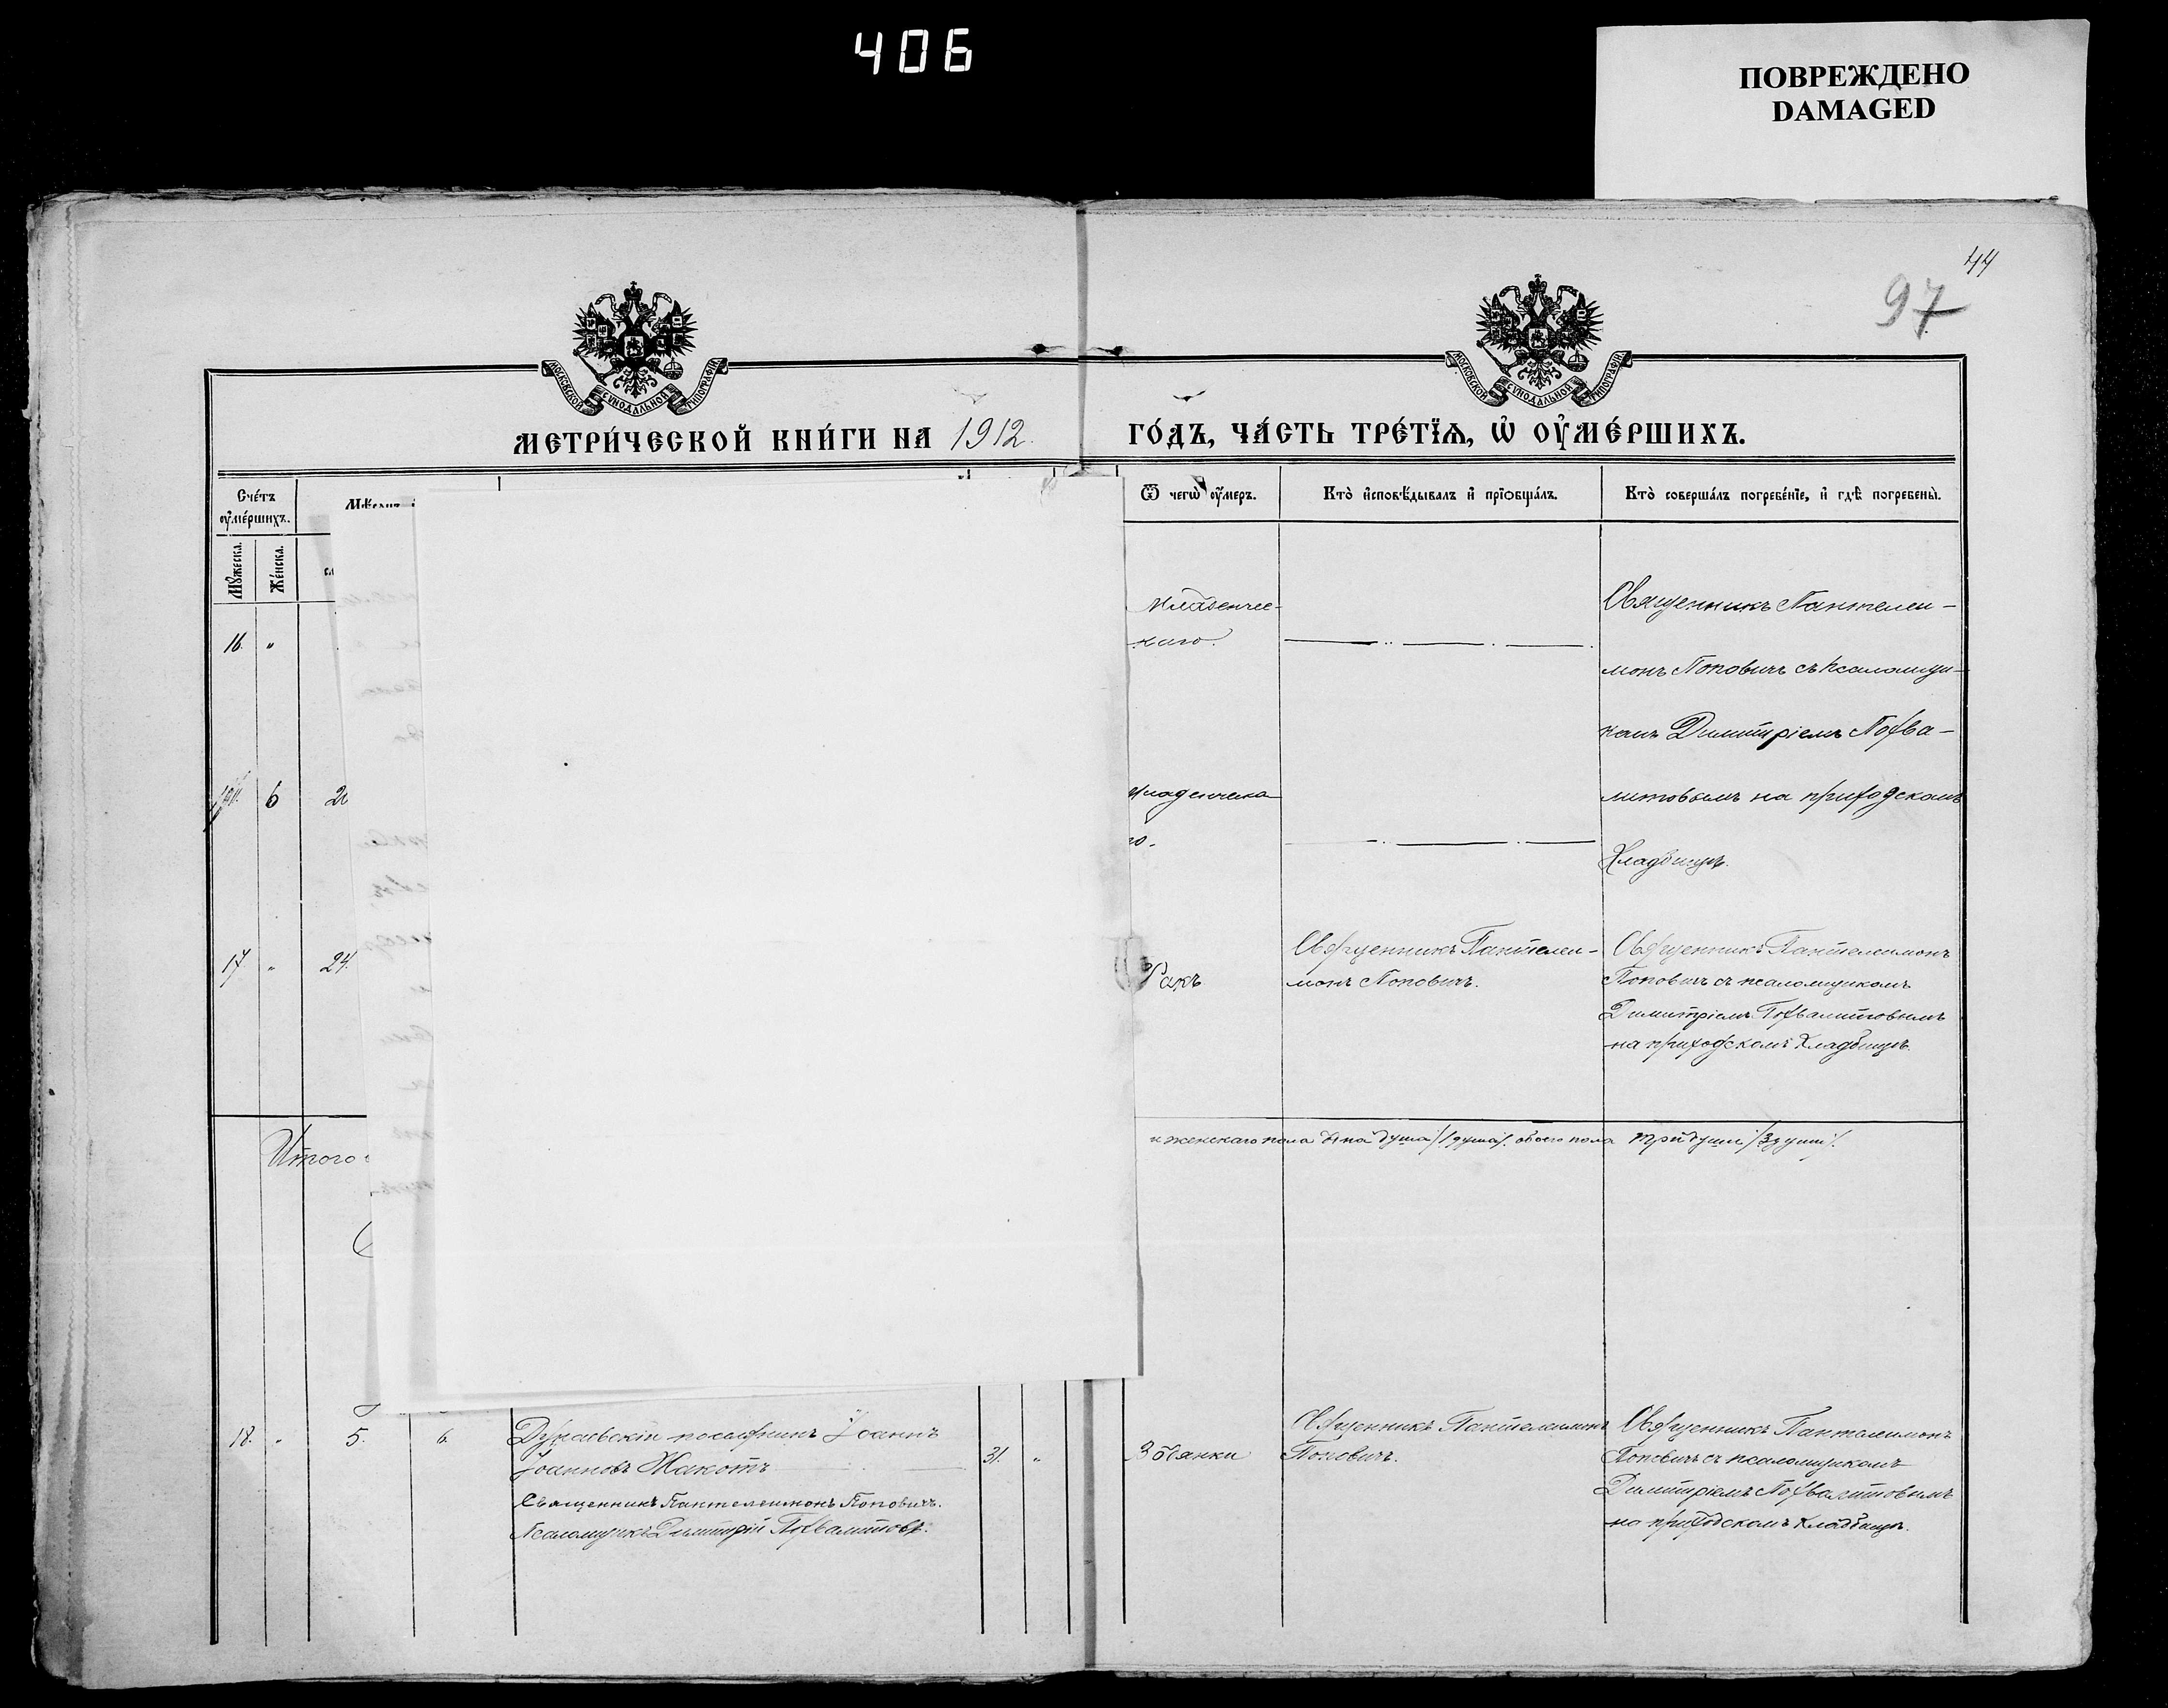 406
ПОВРЕЖДЕНО
DAMAGED
44
97
МОСКОВСКОЙ СѴНОДАЛЬНОЙ ТИПОГРАФІИ
МОСКОВСКОЙ СѴНОДАЛЬНОЙ ТИПОГРАФІИ
МЕТРИ́ЧЕСКОЙ КНИ́ГИ НА 1912
ГО́ДЪ, ЧА́СТЬ ТРЕ́ТІѦ, Ѡ҆ ОУ҆МЕ́РШИХЪ.
Сче́тъ оу҆ме́ршихъ.
Мꙋжеска.
Же́нска.
Ѿ чегѡ̀ оу҆́меръ.
Кто̀ и҆сповѣ́дывалъ и҆ прїѡбща́лъ.
Кто̀ соверша́лъ погребе́нїе, и҆ гдѣ̀ погребены̀.
16. "
младенчес-
каго.
Священникъ Пантелеи-
монъ Поповичъ съ псаломщи-
комъ Димитріемъ Похва-
литовымъ на приходскомъ
кладбищѣ.
6
младенческа-
го.
17. " 24.
Ракъ
Священникъ Пантелеи-
монъ Поповичъ.
Священникъ Пантелеимонъ
Поповичъ съ псаломщикомъ
Димитріемъ Похвалитовымъ
на приходскомъ кладбищѣ.
Итого
и женскаго пола одна душа /1 душа/. обоего пола три души /3 души/.
18. " 5. 6.
поселянинъ Іоаннъ
Іоанновъ Макотъ
31. "
Священникъ Пантелеимонъ Поповичъ.
Псаломщикъ Димитрій Похвалитовъ.
Священникъ Пантелеимонъ
Поповичъ.
Священникъ Пантелеимонъ
Поповичъ съ псаломщикомъ
Димитріемъ Похвалитовымъ
на приходскомъ кладбищѣ.